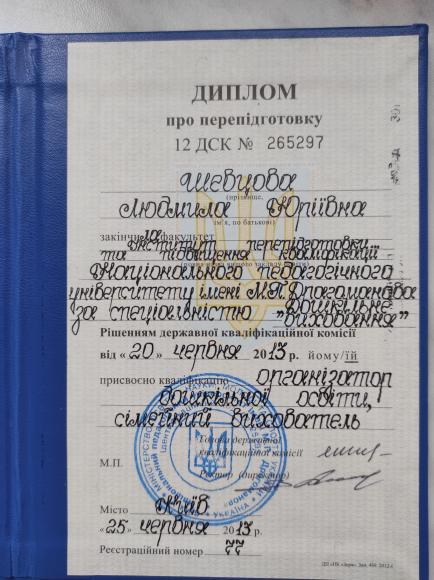 ДИПЛОМ
про перепідготовку
12 ДСК № 265297
Шевцова
(прізвище,
Людмила Юріївна
ім'я, по батькові)
закінчила факультет
Інститут перепідготовки
та підвищення кваліфікації
Національного педагогічного
університету імені М.П.Драгоманова
за спеціальністю „Дошкільне
виховання”
Рішенням державної кваліфікаційної комісії
від «20» червня 2013 р. йому/їй
присвоєно кваліфікацію організатор
дошкільної освіти,
сімейний вихователь
Голова державної
кваліфікаційної комісії
М.П.
Ректор (директор)
Місто Київ
«25» червня 2013 р.
Реєстраційний номер 55